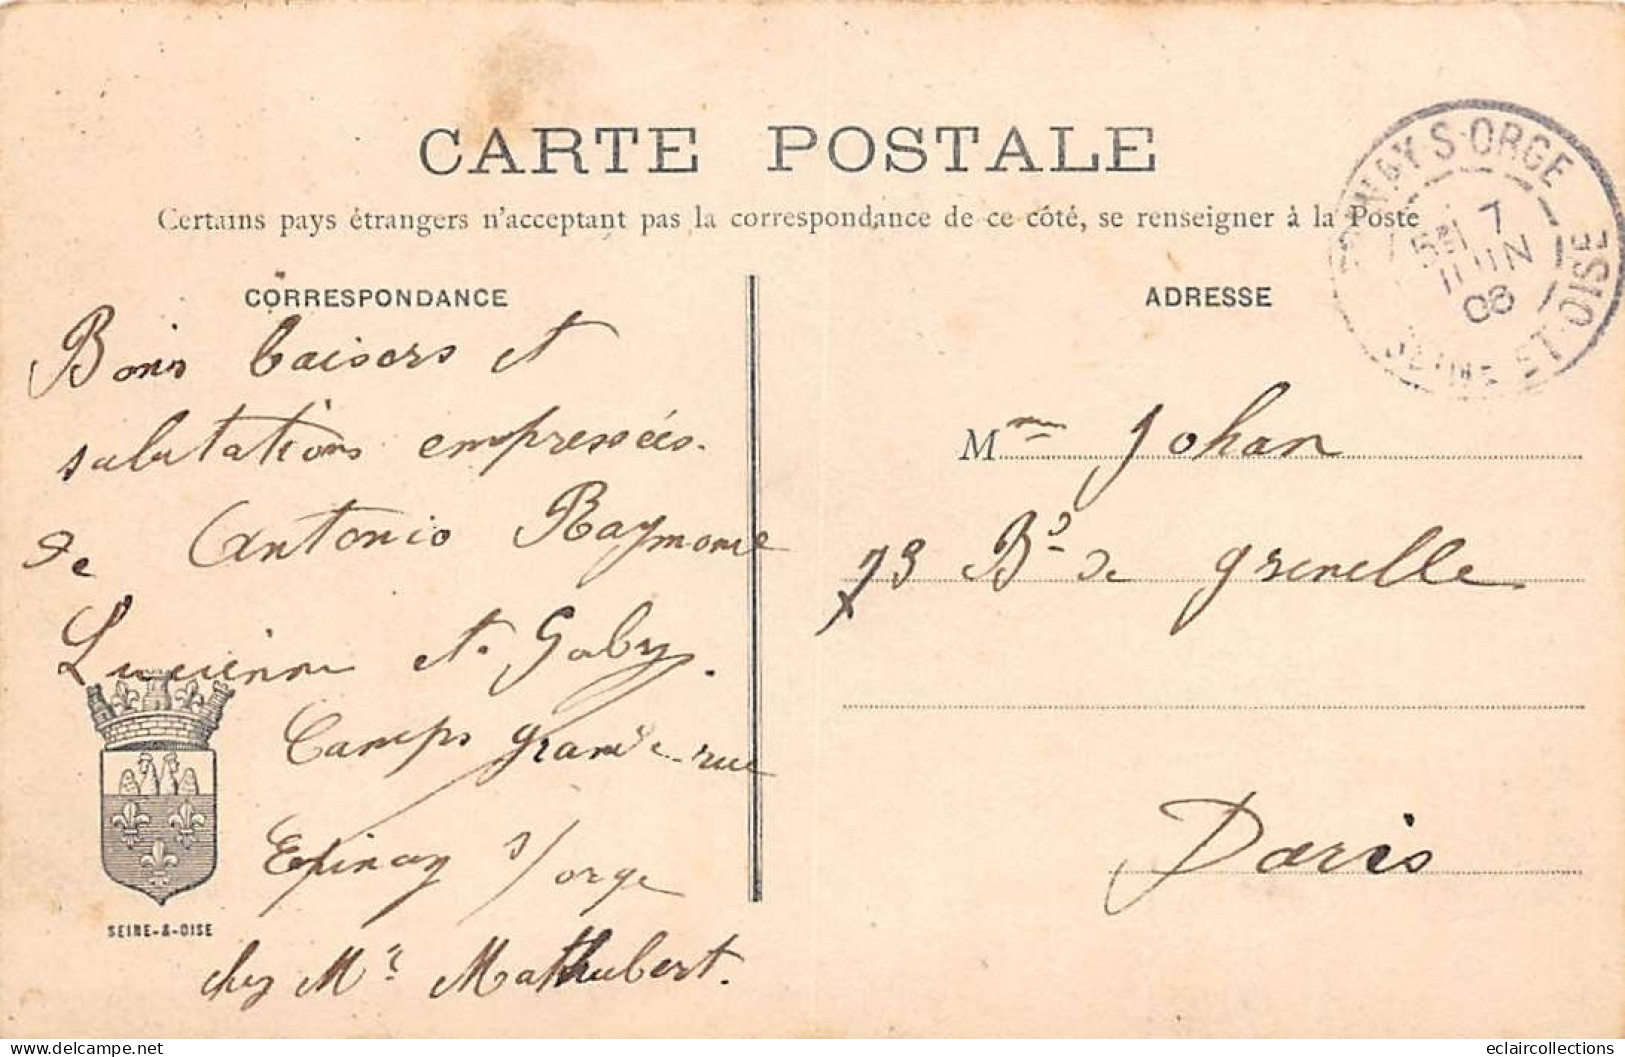 CARTE POSTALE
Certains pays étrangers n'acceptant pas la correspondance de ce côté, se renseigner à la Poste
CORRESPONDANCE
Bons baisers et
salutations empressées.
de Antonio Raymonde
Lucienne et Gaby.
Camps grande rue
Epinay s/orge
chez Mr Mathubert.
SEINE-&-OISE
ADRESSE
Mme Johan
73 Bd de grenelle
Paris
EPINAY-S-ORGE
7
JUIN
06
SEINE-ET-OISE
delcampe.net
eclaircollections